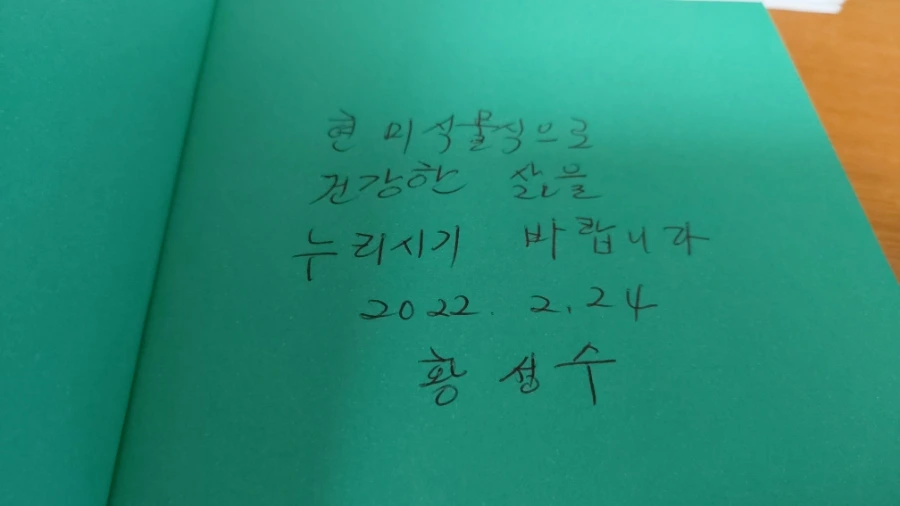 현미식물식으로
건강한 삶을
누리시기 바랍니다
2022. 2. 24
황성수